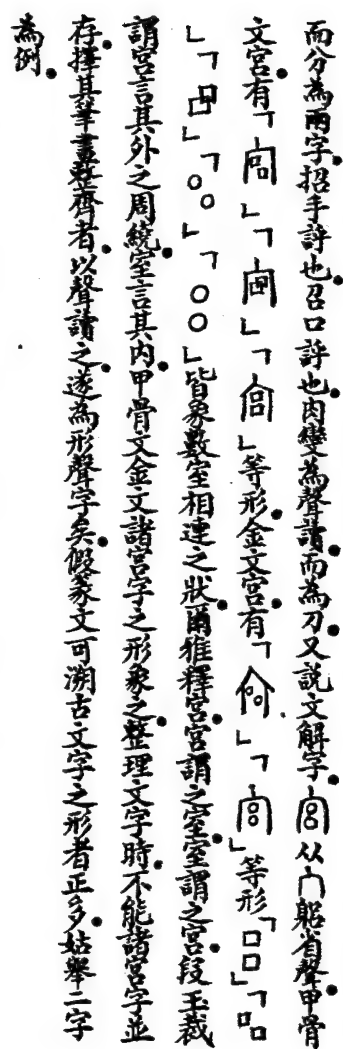 而分為兩字招手評也召口評也肉變為聲讀而為刀又說文解字宮从宀躳省聲甲骨
文宮有「」「」「」等形金文宮有「」「」等形「口口」「吅
」「」「」「」皆象數室相連之狀爾雅釋宮宮謂之室室謂之宮段玉裁
謂宮言其外之周繞室言其内甲骨文金文諸宮字之形象之整理文字時不能諸宮字並
存擇其筆畫整齊者以聲讀之遂為形聲字矣假篆文可溯古文字之形者正多姑舉二字
為例